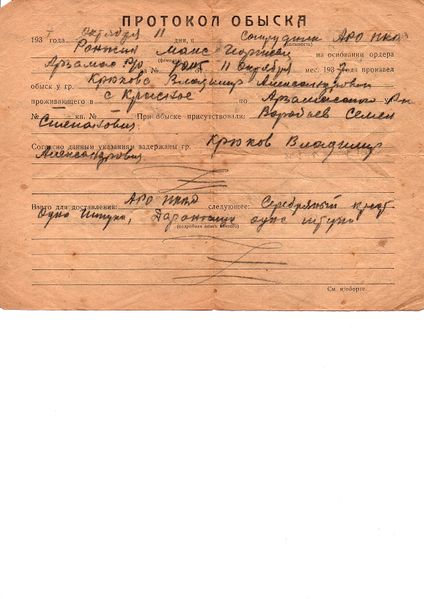 ПРОТОКОЛ ОБЫСКА
193 7 года октября 11 дня, я сотрудник АРО НКВД
Макс на основании ордера
11 октября мес. 1937 произвел
обыск у гр. Крюкова Владимир Александрович
проживающего в с Красное по Арзамасского
№ кв. № При обыске присутствовали: Воробьев Семен
Степанович.
Согласно данным указаниям задержаны гр. Крюков Владимир
Александрович
Взято для доставления: АРО НКВД следующее: Серебряный крест
одна штука, одна штука
(подробная опись взятого)
См. на обороте.